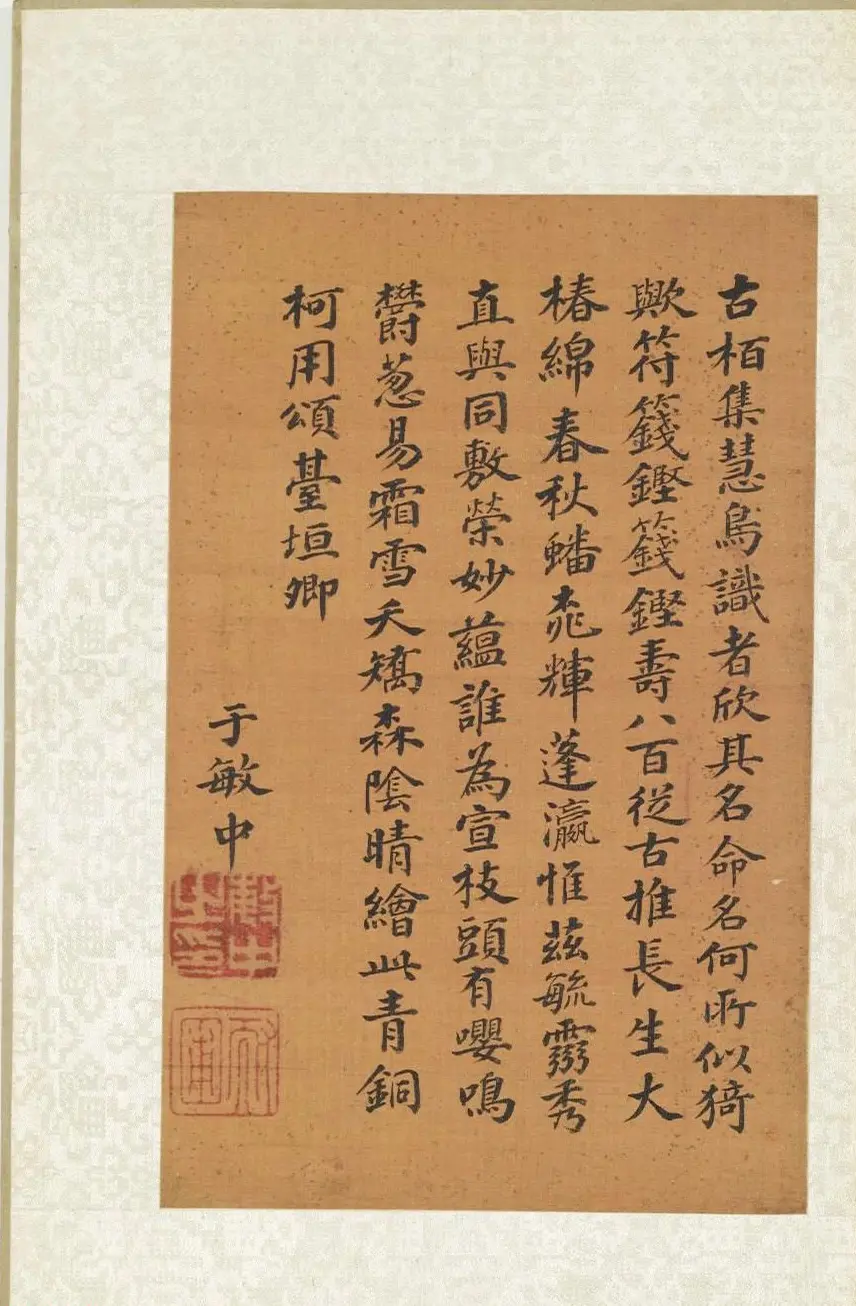 古栢集慧鳥識者欣其名命名何所似猗
歟符籛鏗籛鏗壽八百從古推長生大
椿綿春秋蟠桃輝蓬瀛惟茲毓靈秀
直與同敷榮妙蘊誰為宣枝頭有嚶鳴
欎葱易霜雪夭矯森陰晴繪此青銅
柯用頌臺垣卿
于敏中